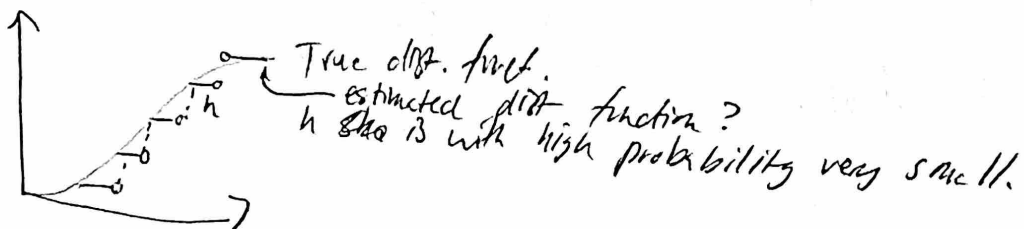 True dist. funct.
h
estimated dist function?
h is with high probability very small.